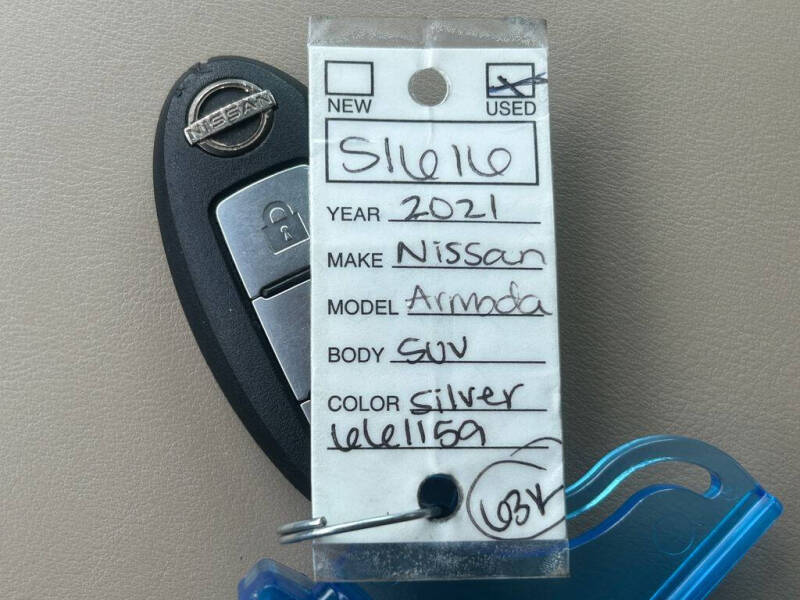 NISSAN
NEW USED
S16616
YEAR 2021
MAKE Nissan
MODEL Armada
BODY SUV
COLOR Silver
661159
63k